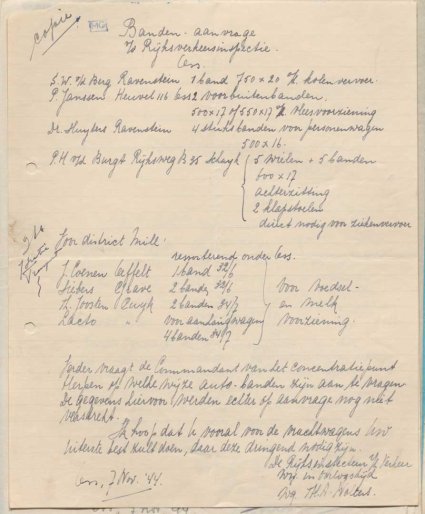 copie
MG
Banden-aanvrage
Rijksverkeersinspectie.
Oss.
S.W. v/d Berg Ravenstein 1 band 750 x 20 kolenvervoer.
P. Janssen Heuvel 116 Oss 2 voorbuitenbanden.
500x17 of 550x17 vleesvoorziening
Dr. Kuyters Ravenstein 4 stuks banden voor personenwagen
500 x 16.
P.H. v/d Burgt Rijksweg B 35 Schayk
5 wielen + 5 banden
600 x 17
achterzitting
2 klapstoelen
direct nodig voor ziekenvervoer
Voor district Mill:
ressorterend onder Oss.
J. Coenen Oeffelt 1 band 32/6
Siebers Grave 2 banden 32/6
Joosten Cuyk 2 banden 34/7
Lacto " voor aanhangwagen
4 banden 34/7
voor voedsel-
en melk
voorziening.
Verder vraagt de Commandant van het concentratiepunt
Herpen op welke wijze auto-banden zijn aan te vragen
De gegevens hiervoor werden echter op aanvrage nog niet
verstrekt.
Ik hoop dat u vooral voor de vrachtwagens Uw
uiterste best zult doen, daar deze dringend nodig zijn.
De Rijksinspecteur Verkeer
Oss, 7 Nov. '44.